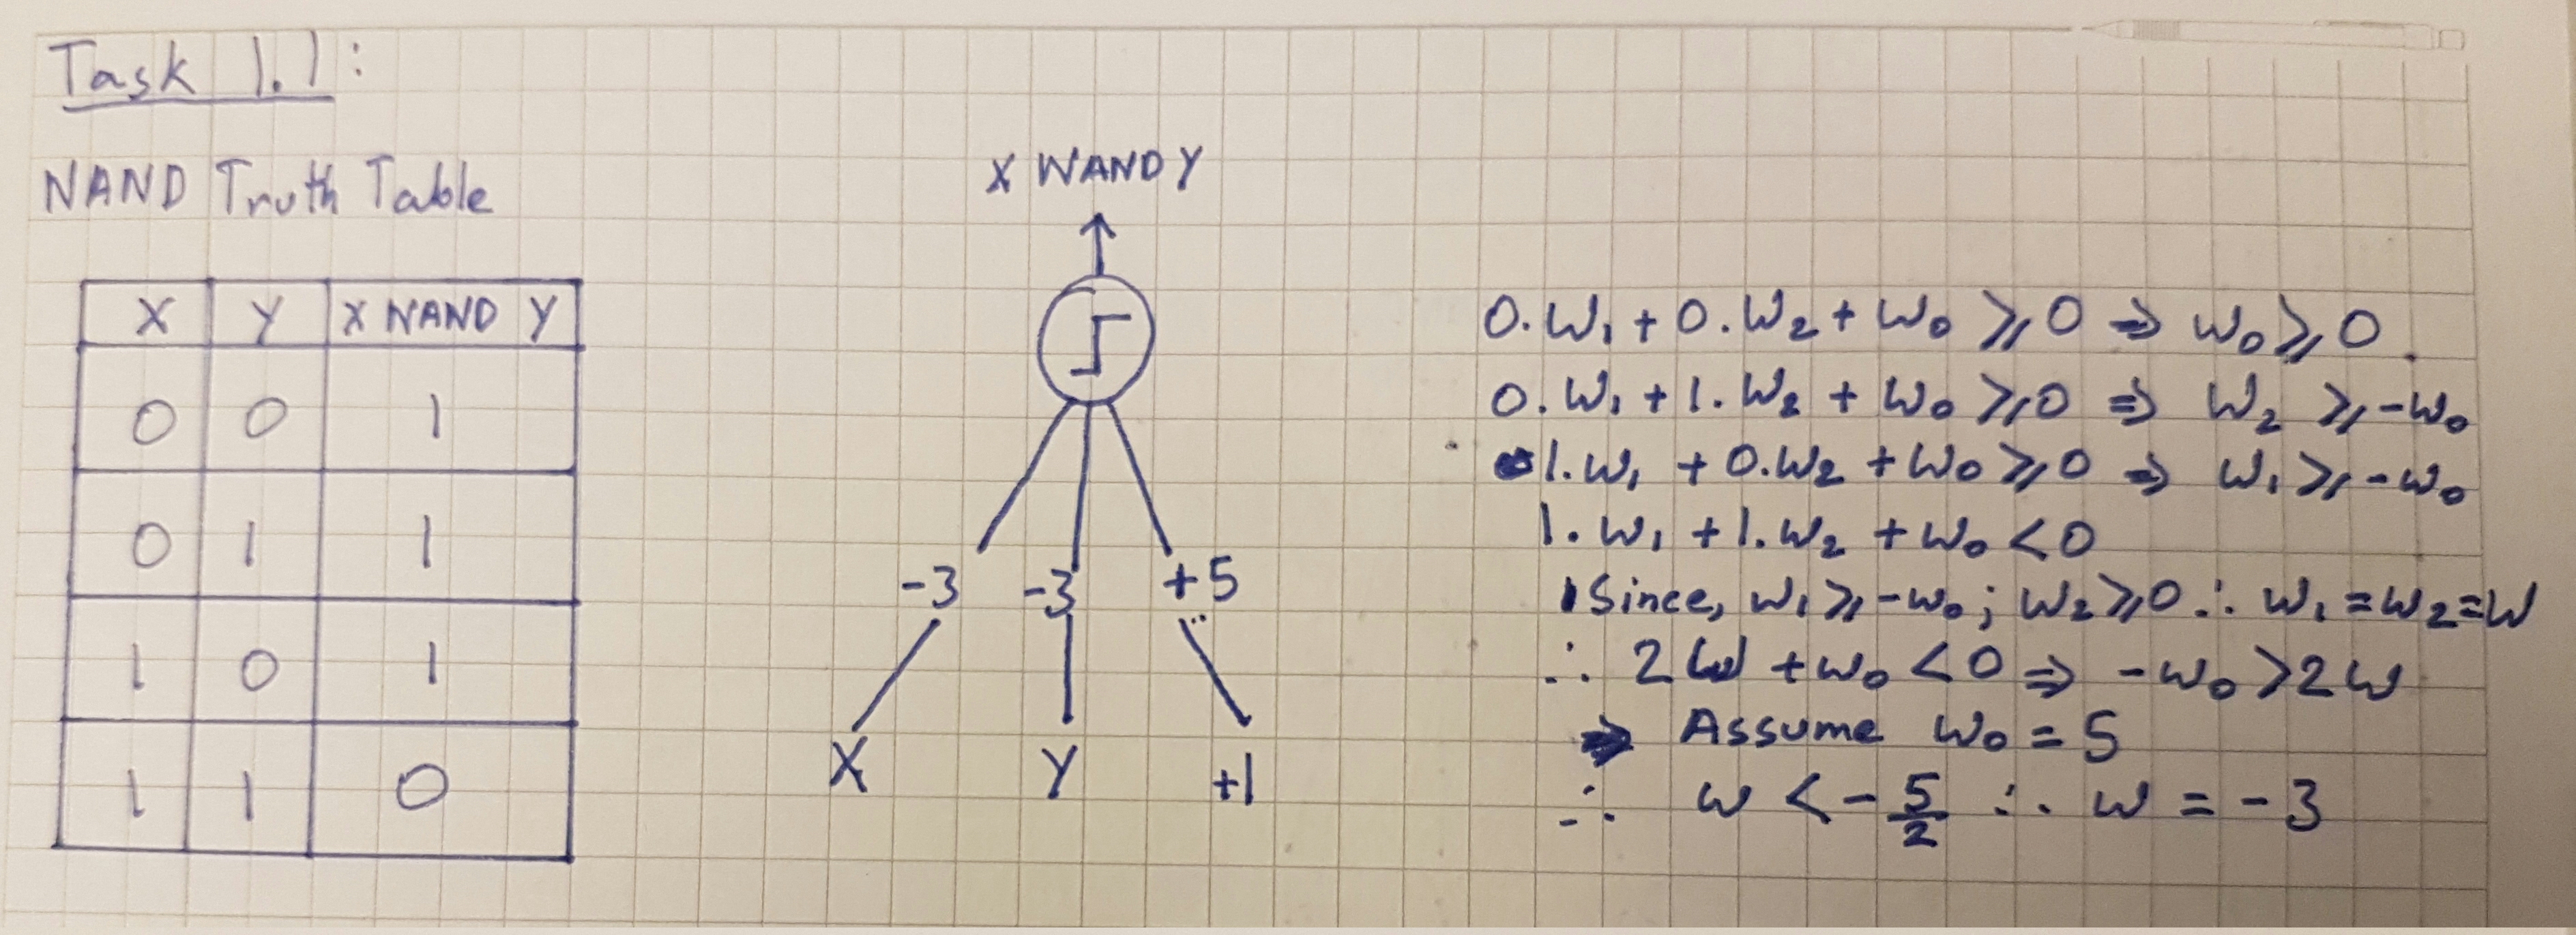 Task 1.1:
NAND Truth Table
X Y X NAND Y
0 0 1
0 1 1
1 0 1
1 1 0
X WAND Y
-3 -3 +5
X Y +1
0.W₁ + 0.W₂ + W₀ ⩾ 0 ⇒ W₀ ⩾ 0.
0.W₁ + 1.W₂ + W₀ ⩾ 0 ⇒ W₂ ⩾ -W₀
1.W₁ + 0.W₂ + W₀ ⩾ 0 ⇒ W₁ ⩾ -W₀
1.W₁ + 1.W₂ + W₀ < 0
Since, W₁ ⩾ -W₀; W₂ ⩾ 0 ∴ W₁ = W₂ = W
∴ 2W + W₀ < 0 ⇒ -W₀ > 2W
⇒ Assume W₀ = 5
∴ W < -5/2 ∴ W = -3